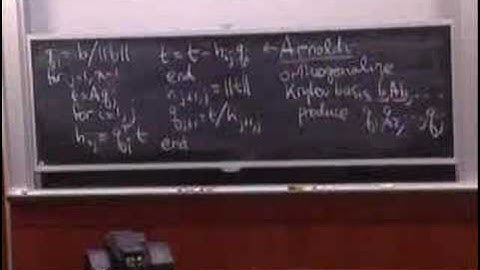 q₁ = b/||b||
for j=1, n-1
t = Aqⱼ
for i=1, j
hᵢⱼ = qᵢᵀ t
t = t - hᵢⱼ qᵢ
end
hⱼ₊₁,ⱼ = ||t||
qⱼ₊₁ = t/hⱼ₊₁,ⱼ
end
← Arnoldi
orthogonalize
Krylov basis b, Ab, ...
produce